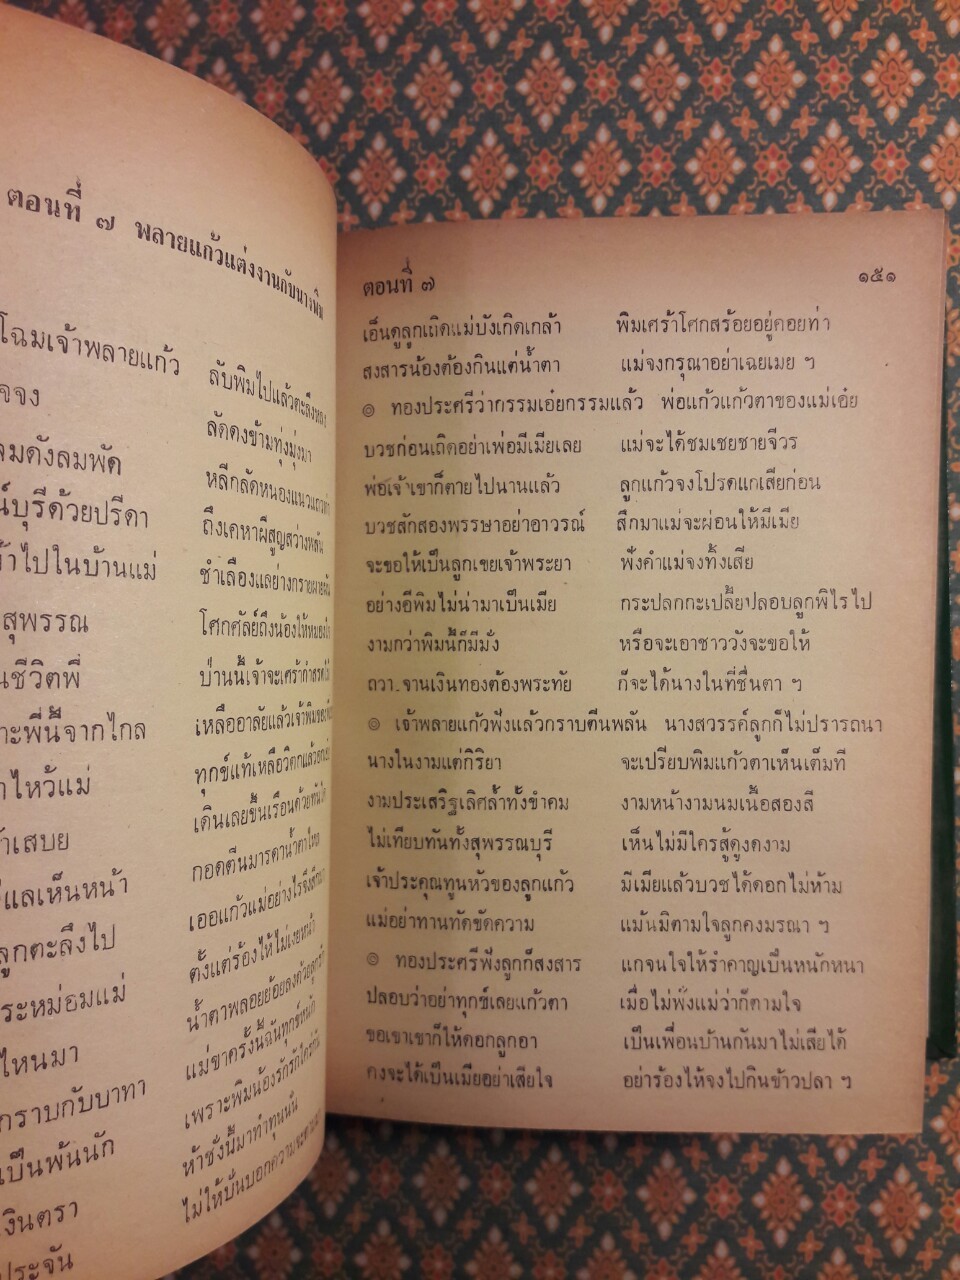 ตอนที่ ๗ พลายแก้วแต่งงานกับนางพิม
โฉมเจ้าพลายแก้ว ลับพิมไปแล้วตะลึงหลง
จจง ลัดดงข้ามทุ่งมุ่งมา
ลมดังลมพัด หลีกลัดหนองแนว
บุรีด้วยปรีดา ถึงเคหาผีสูญสว่างพลัน
ไปในบ้านแม่ ชำเลืองแลย่างกราย
สุพรรณ โศกศัลย์ถึงน้องให้หมอง
นชีวิตพี่ ป่านนี้เจ้าจะเศร้ากำสรด
าะพี่นี้จากไกล เหลืออาลัยแล้วเจ้าพิม
าไหว้แม่ ทุกข์แท้เหลือวิตกแล้ว
าเสบย เดินเลยขึ้นเรือนด้วยทันใด
แลเห็นหน้า กอดตีนมารดาน้ำตาไหล
ลูกตะลึงไป เออแก้วแม่อย่างไรจึง
ระหม่อมแม่ ตั้งแต่ร้องไห้ไม่เงยหน้า
ไหนมา น้ำตาพลอยย้อยลงด้วย
กราบกับบาทา แม่ขาครั้งนี้ฉันทุกข์หนัก
เป็นพ้นนัก เพราะพิมน้องรักรักใคร่กัน
งินตรา ห้าชั่งนี้มาทำทุนนั้น
ประจัน ไม่ให้บั่นบอกความ
ตอนที่ ๗ ๑๕๑
เอ็นดูลูกเถิดแม่บังเกิดเกล้า พิมเศร้าโศกสร้อยอยู่คอยท่า
สงสารน้องต้องกินแต่น้ำตา แม่จงกรุณาอย่าเฉยเมย ฯ
๏ ทองประศรีว่ากรรมเอ๋ยกรรมแล้ว พ่อแก้วแก้วตาของแม่เอ๋ย
บวชก่อนเถิดอย่าเพ่อมีเมียเลย แม่จะได้ชมเชยชายจีวร
พ่อเจ้าเขาก็ตายไปนานแล้ว ลูกแก้วจงโปรดแกเสียก่อน
บวชสักสองพรรษาอย่าอาวรณ์ สึกมาแม่จะผ่อนให้มีเมีย
จะขอให้เป็นลูกเขยเจ้าพระยา ฟังคำแม่จงทิ้งเสีย
อย่างอีพิมไม่น่ามาเป็นเมีย กระปลกกะเปลี้ยปลอบลูกพิไรไป
งามกว่าพิมนี้ก็มีมั่ง หรือจะเอาชาววังจะขอให้
ถวา.จานเงินทองต้องพระทัย ก็จะได้นางในที่ชื่นตา ฯ
๏ เจ้าพลายแก้วฟังแล้วกราบตีนพลัน นางสวรรค์ลูกก็ไม่ปรารถนา
นางในงามแต่กิริยา จะเปรียบพิมแก้วตาเห็นเต็มที
งามประเสริฐเลิศล้ำทั้งขำคม งามหน้างามนมเนื้อสองสี
ไม่เทียบทันทั้งสุพรรณบุรี เห็นไม่มีใครสู้ดูงดงาม
เจ้าประคุณทูนหัวของลูกแก้ว มีเมียแล้วบวชได้ดอกไม่ห้าม
แม่อย่าทานทัดขัดความ แม้นมิตามใจลูกคงมรณา ฯ
๏ ทองประศรีฟังลูกก็สงสาร แกจนใจให้รำคาญเป็นหนักหนา
ปลอบว่าอย่าทุกข์เลยแก้วตา เมื่อไม่ฟังแม่ว่าก็ตามใจ
ขอเขาเขาก็ให้ดอกลูกอา เป็นเพื่อนบ้านกันมาไม่เสียได้
คงจะได้เป็นเมียอย่าเสียใจ อย่าร้องไห้จงไปกินข้าวปลา ฯ